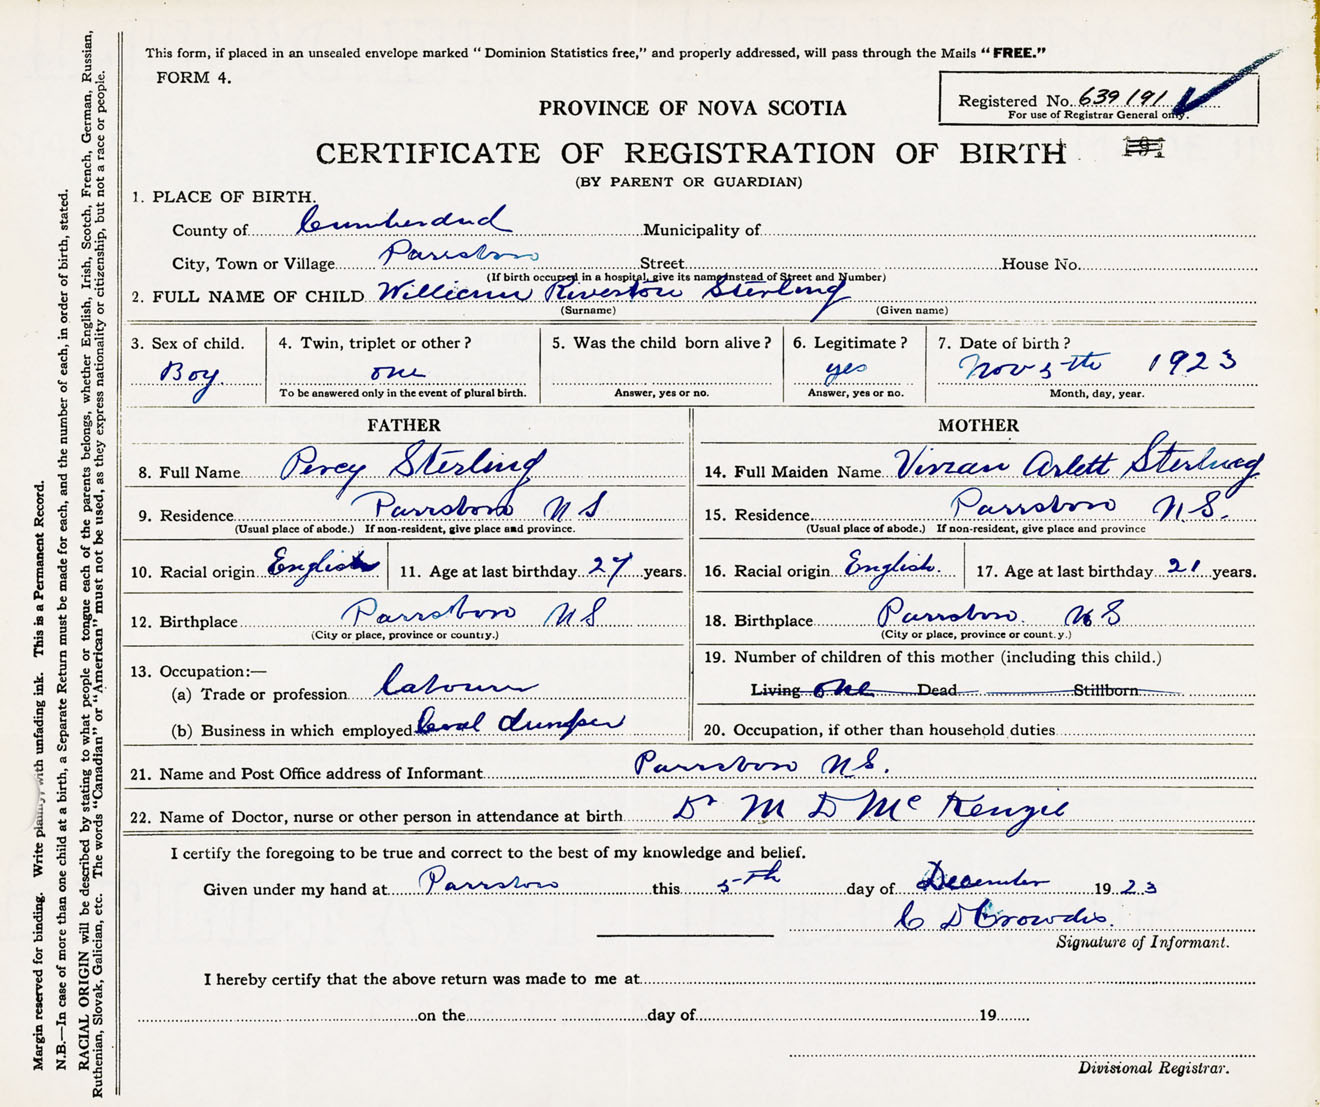 This form, if placed in an unsealed envelope marked “ Dominion Statistics free,” and properly addressed, will pass through the Mails “ FREE.”
FORM 4.
Registered No. 639191
For use of Registrar General only.
PROVINCE OF NOVA SCOTIA
CERTIFICATE OF REGISTRATION OF BIRTH
(BY PARENT OR GUARDIAN)
1. PLACE OF BIRTH.
County of Cumberland Municipality of
City, Town or Village Parrsboro Street House No.
(If birth occurred in a hospital, give its name instead of Street and Number)
2. FULL NAME OF CHILD William Riverston Sterling
(Surname) (Given name)
3. Sex of child. 4. Twin, triplet or other ? 5. Was the child born alive ? 6. Legitimate ? 7. Date of birth ?
Boy one yes Nov 5th 1923
To be answered only in the event of plural birth. Answer, yes or no. Answer, yes or no. Month, day, year.
FATHER MOTHER
8. Full Name Percy Sterling 14. Full Maiden Name Vivian Arlett Sterling
9. Residence Parrsboro N S 15. Residence Parrsboro N.S.
(Usual place of abode.) If non-resident, give place and province. (Usual place of abode.) If non-resident, give place and province
10. Racial origin English 11. Age at last birthday 27 years. 16. Racial origin English. 17. Age at last birthday 21 years.
12. Birthplace Parrsboro N S 18. Birthplace Parrsboro. N S
(City or place, province or country.) (City or place, province or count.y.)
13. Occupation:— 19. Number of children of this mother (including this child.)
(a) Trade or profession Labourer Living one Dead Stillborn
(b) Business in which employed Coal dumper 20. Occupation, if other than household duties
21. Name and Post Office address of Informant Parrsboro N.S.
22. Name of Doctor, nurse or other person in attendance at birth Dr M D McKenzie
I certify the foregoing to be true and correct to the best of my knowledge and belief.
Given under my hand at Parrsboro this 5th day of December 1923
C D Crowdis.
Signature of Informant.
I hereby certify that the above return was made to me at
on the day of 19
Divisional Registrar.
Margin reserved for binding. Write plainly, with unfading ink. This is a Permanent Record.
N.B.—In case of more than one child at a birth, a Separate Return must be made for each, and the number of each, in order of birth, stated.
RACIAL ORIGIN will be described by stating to what people or tongue each of the parents belongs, whether English, Irish, Scotch, French, German, Russian,
Ruthenian, Slovak, Galician, etc. The words “Canadian” or “American” must not be used, as they express nationality or citizenship, but not a race or people.